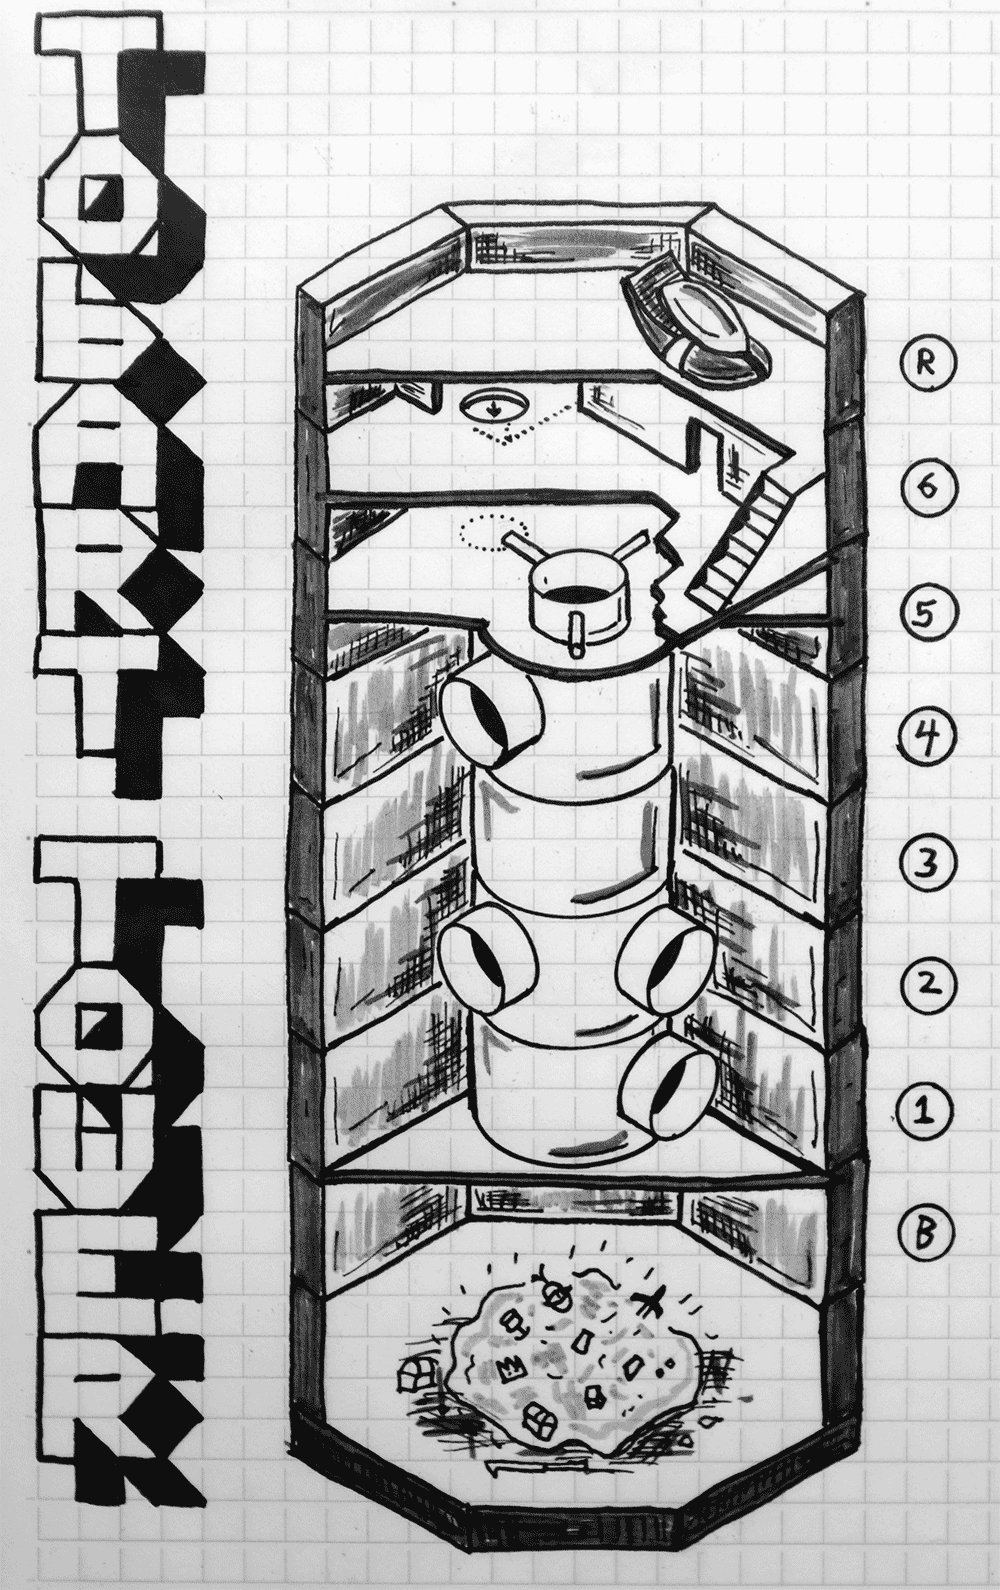 TOBART TOWER
R
6
5
4
3
2
1
B